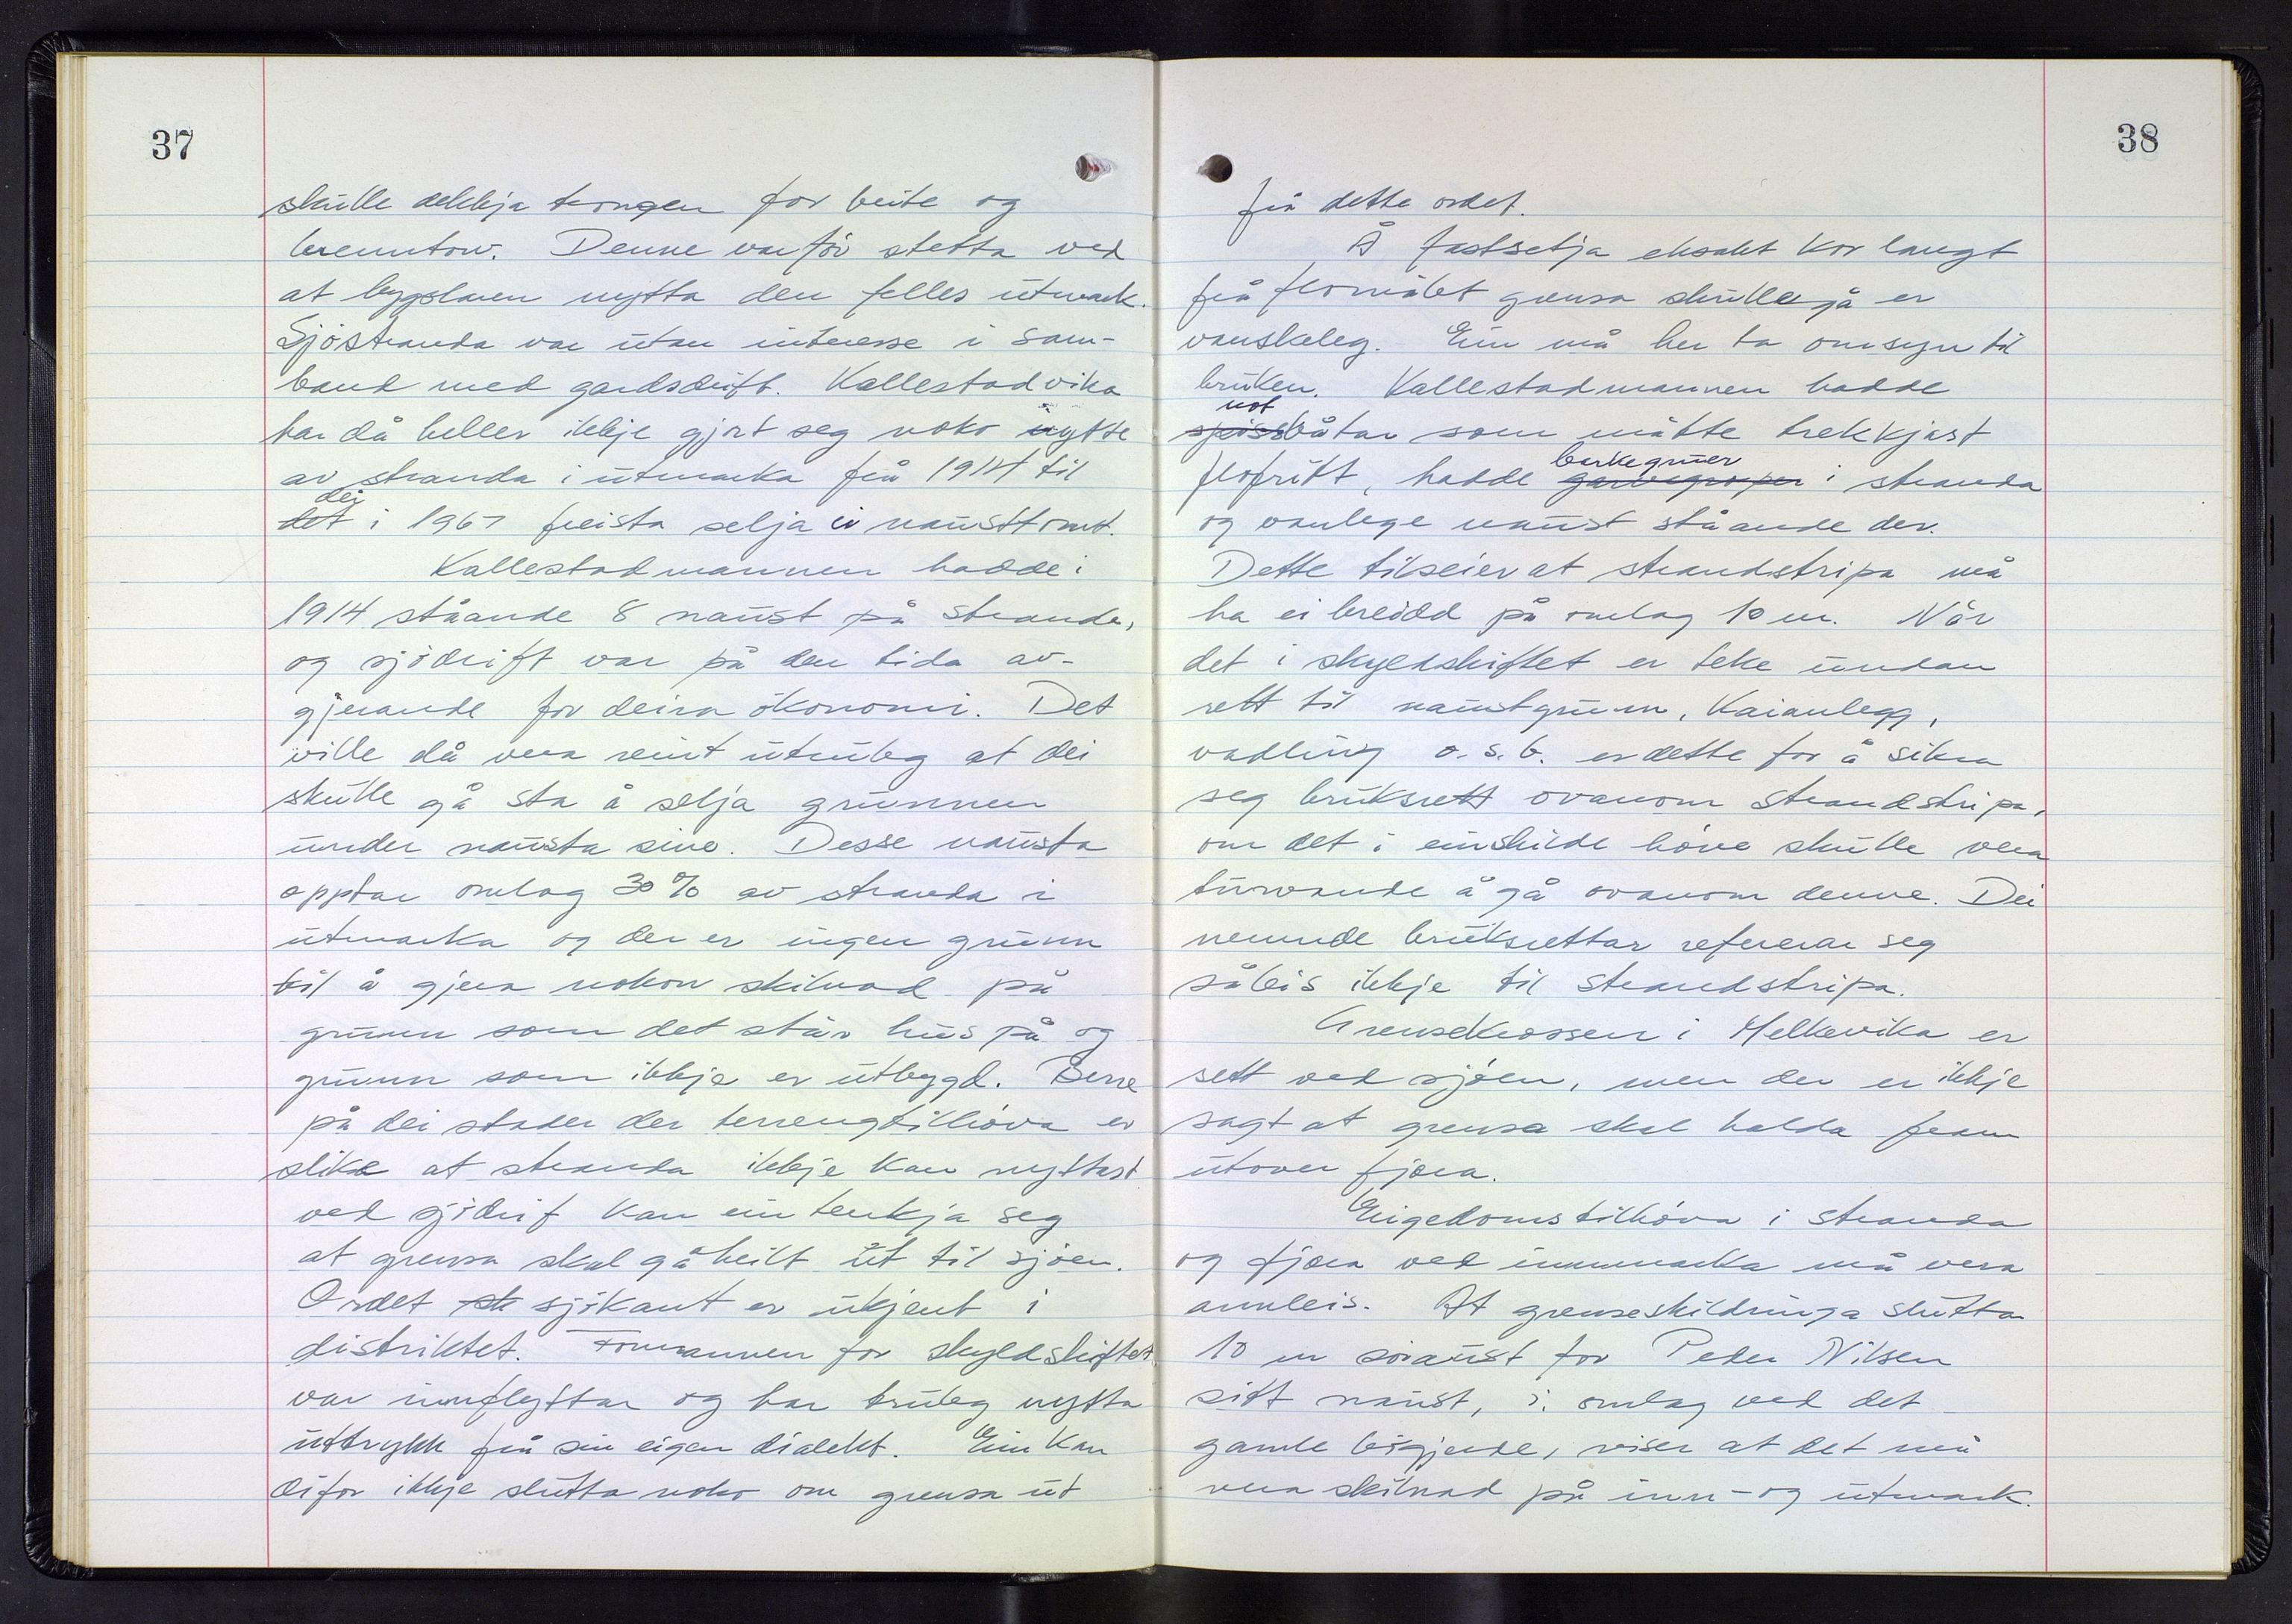 37
skulle dekkja trongen for beite og
brenntorv. Denne var før stetta ved
at bygslaren nytta den felles utmark.
Sjöstranda var utan interesse i sam-
band med gardsdrift. Kallestadvika
har då heller ikkje gjort seg noko nytte
av stranda i utmarka frå 1914 til
dei
det i 1967 freista selja ei nausttomt.
Kallestadmannen hadde i
1914 ståande 8 naust på stranda,
og sjödrift var på den tida av-
gjerande for deira ökonomi. Det
ville då vera reint utruleg at dei
skulle gå sta å selja grunnen
under nausta sine. Desse nausta
opptar omlag 30% av stranda i
utmarka og der er ingen grunn
til å gjera nokon skilnad på
grunn som det står hus på og
grunn som ikkje er utbygd. Berre
på dei stader der terrengtilhöva er
slike at stranda ikkje kan nyttast
ved sjödrif kan ein tenkja seg
at grensa skal gå heilt ut til sjöen.
Ordet sk sjökant er ukjent i
distriktet. Formannen for skyldskiftet
var innflyttar og har truleg nytta
uttrykk frå sin eigen dialekt. Ein kan
difor ikkje slutta noko om grensa ut
38
frå dette ordet.
Å fastsetja eksakt kor langt
frå flomålet grensa skulle gå er
vanskeleg. Ein må her ta omsyn til
bruken. Kallestadmannen hadde
not
spissbåtar som måtte trekkjast
flofritt, hadde garvegroper i stranda
barkegruer
og vanlege naust ståande der.
Dette tilseier at strandstripa må
ha ei breidd på omlag 10 m. Når
det i skyldskiftet er teke undan
rett til naustgrunn, kaianlegg,
vadling o.s.b. er dette for å sikra
seg bruksrett ovanom strandstripa,
om det i einskilde höve skulle vera
turvande å gå ovanom denne. Dei
nemnde bruksrettar refererar seg
såleis ikkje til strandstripa.
Grensekrossen i Melkevika er
sett ved sjöen, men der er ikkje
sagt at grensa skal halda fram
utover fjöra.
Eigedomstilhöva i stranda
og fjöra ved innmarka må vera
annleis. At grenseskildringa sluttar
10 m söraust for Peder Nilsen
sitt naust, i. omlag ved det
gamle bögjerde, viser at det må
vera skilnad på inn- og utmark.